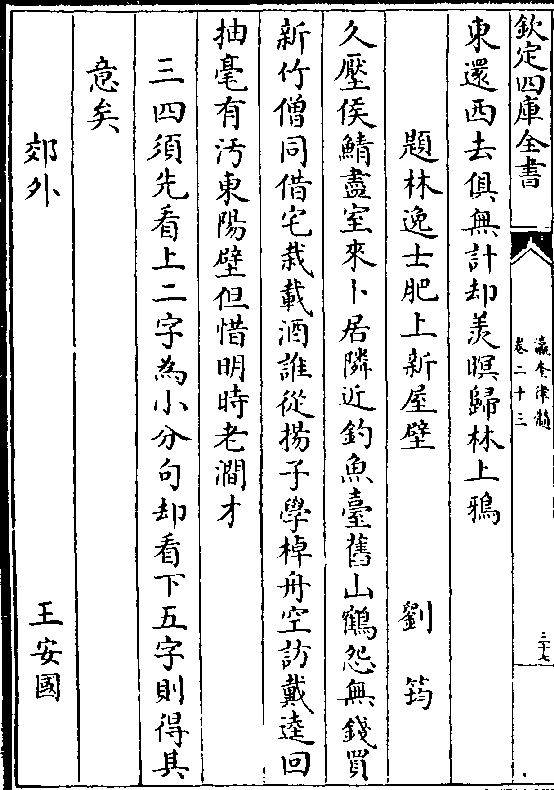 欽定四庫全書
瀛奎律髓
卷二十三
三十七
東還西去俱無計却羨暝歸林上鴉
題林逸士肥上新屋壁　劉筠
久壓侯鯖盡室來卜居隣近釣魚臺舊山鶴怨無錢買
新竹僧同借宅栽載酒誰從揚子學棹舟空訪戴逵回
抽毫有汚東陽壁但惜明時老澗才
三四須先看上二字為小分句却看下五字則得其
意矣
郊外　王安國